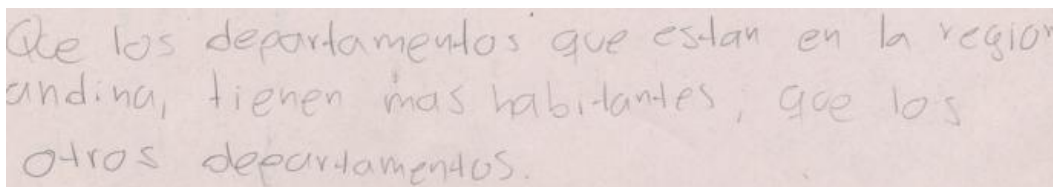 Que los departamentos que estan en la region
andina, tienen mas habitantes, que los
otros departamentos.